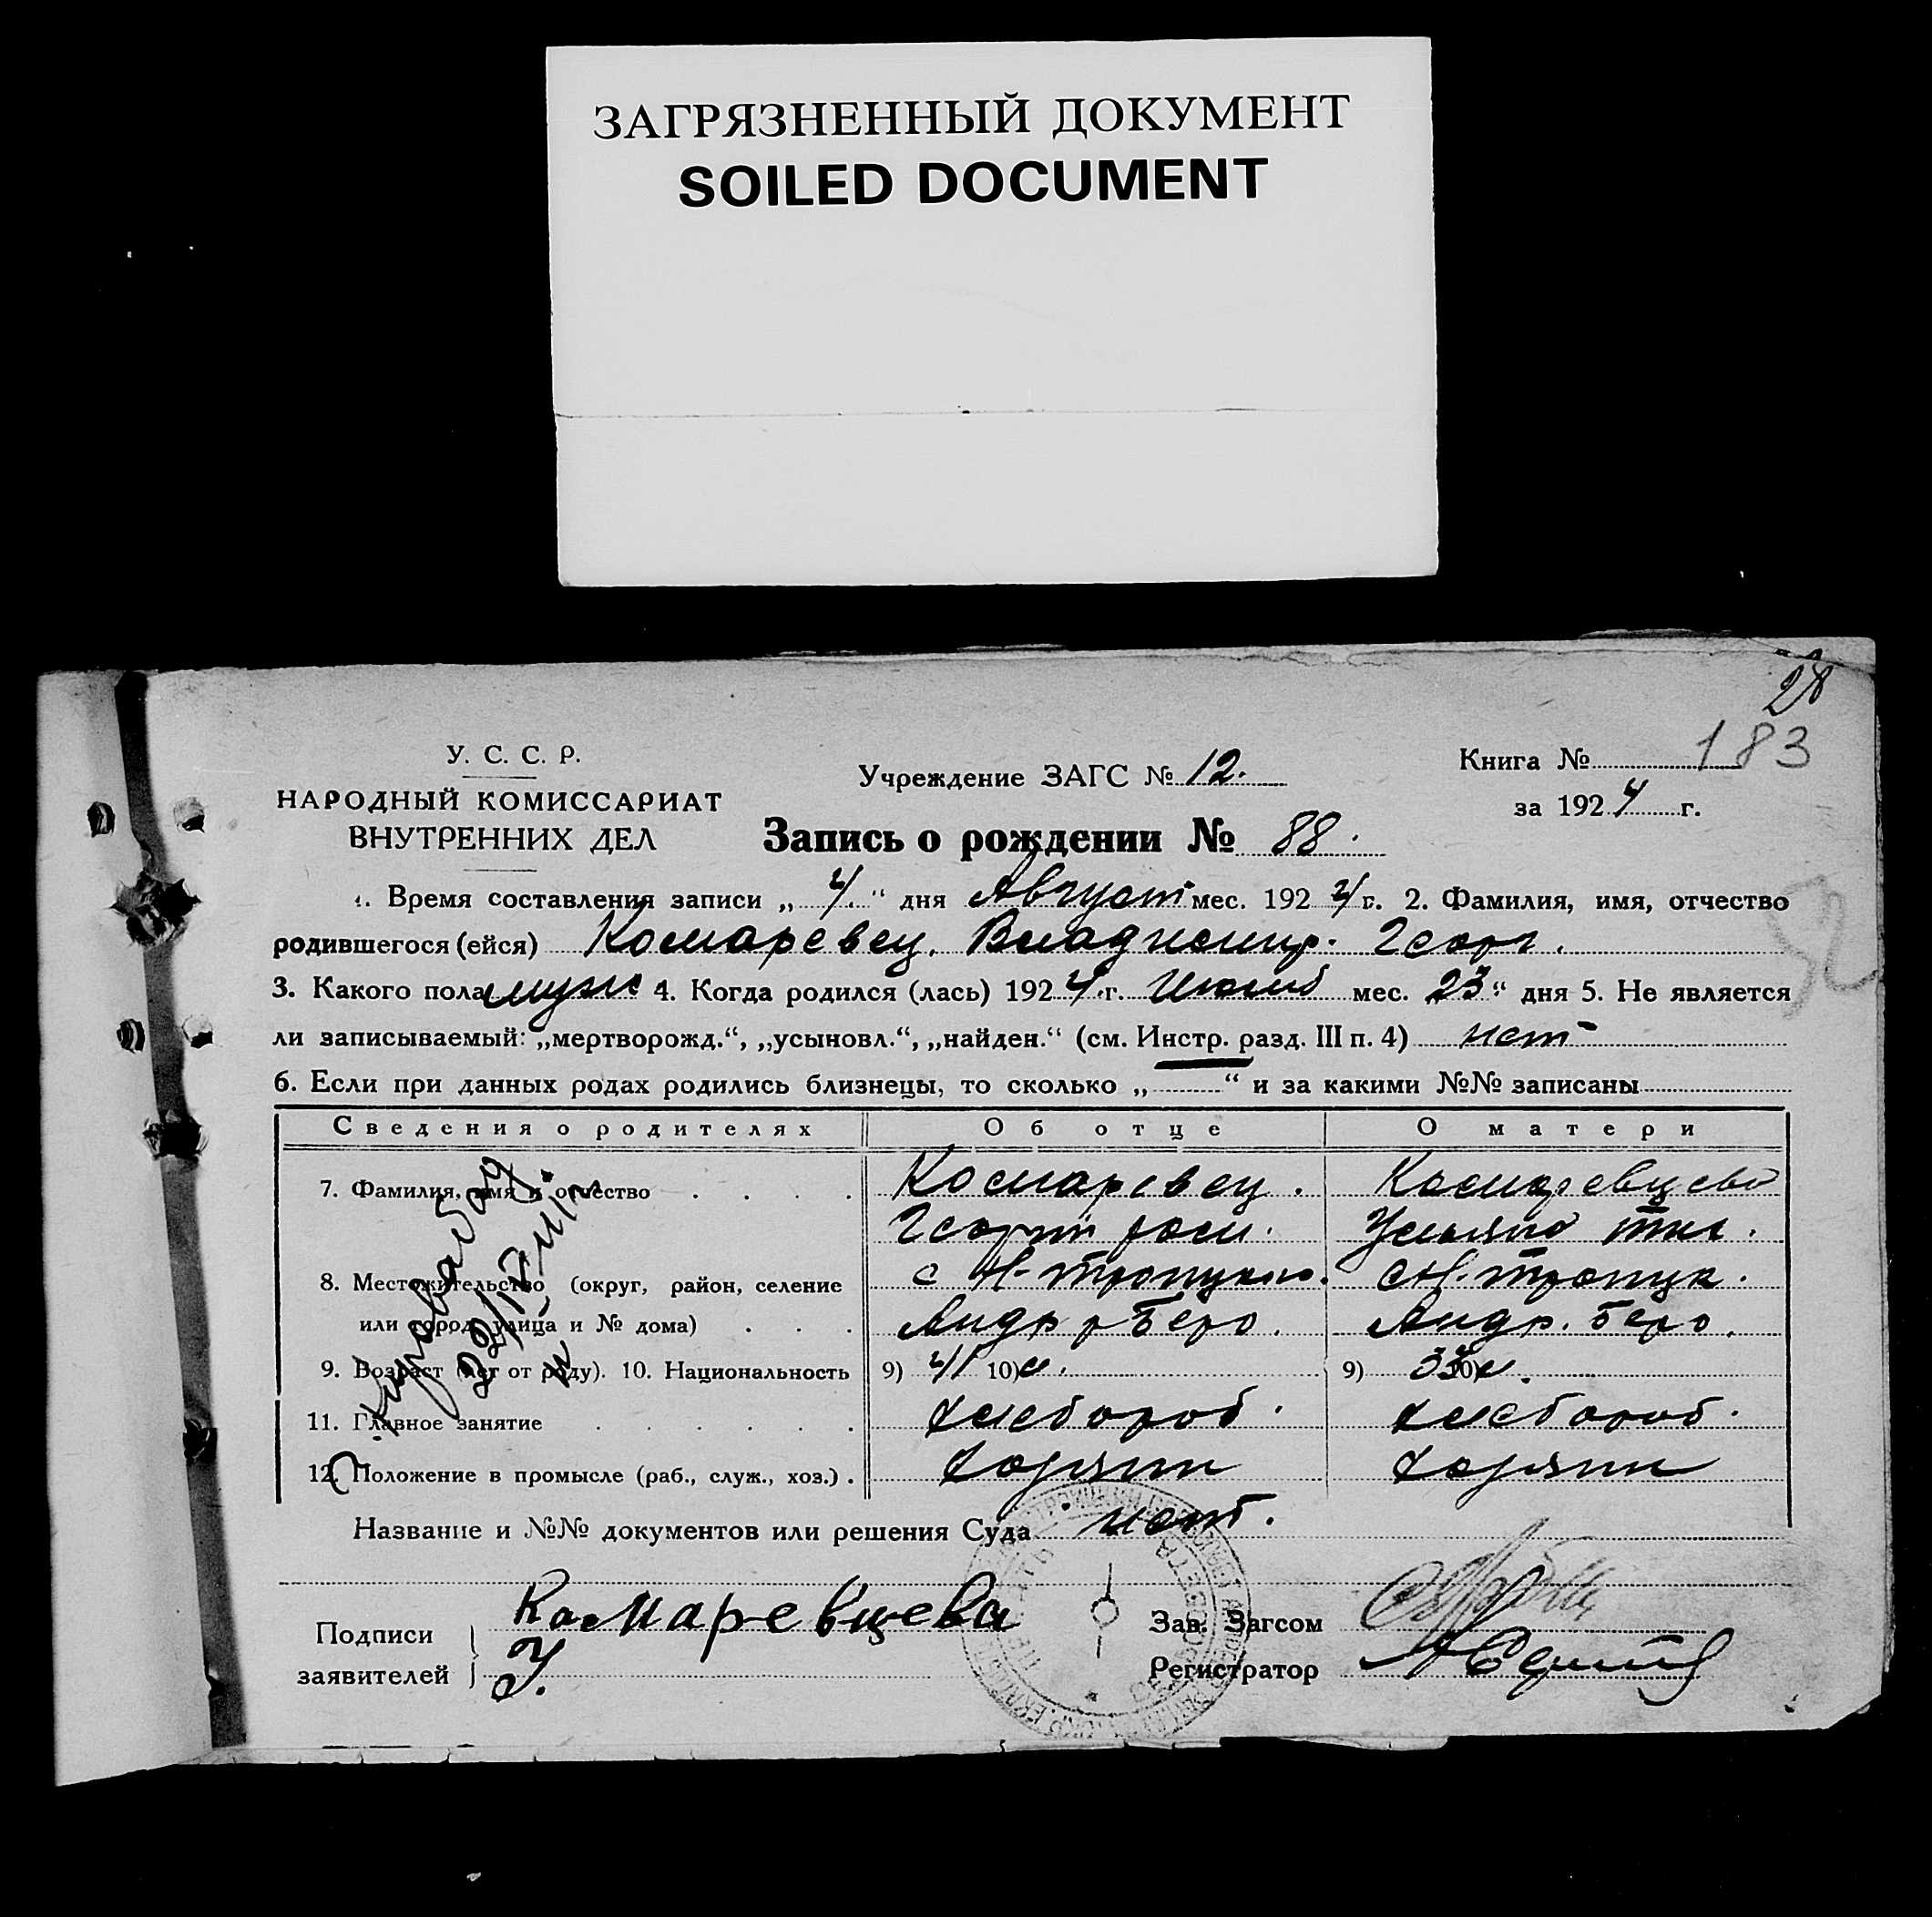 ЗАГРЯЗНЕННЫЙ ДОКУМЕНТ
SOILED DOCUMENT
28
183
У. С. С. Р.
НАРОДНЫЙ КОМИССАРИАТ
ВНУТРЕННИХ ДЕЛ
Учреждение ЗАГС № 12.
Книга №
за 1924 г.
Запись о рождении № 88.
1. Время составления записи „ 4. “ дня Август мес. 1924 г. 2. Фамилия, имя, отчество
родившегося (ейся) Комаревец. Владимир. Георг.
3. Какого пола муж 4. Когда родился (лась) 1924 г. мес. 23 “ дня 5. Не является
ли записываемый: „мертворожд.“, „усыновл.“, „найден.“ (см. Инстр. разд. III п. 4) нет
6. Если при данных родах родились близнецы, то сколько „ — “ и за какими №№ записаны
Сведения о родителях Об отце О матери
7. Фамилия, имя и отчество Комаревец. Комаревцева
Георги
8. Местожительство (округ, район, селение с Н-
или город, улица и № дома) Андр Андр.
9. Возраст (лет от роду). 10. Национальность 9) 41 10) 9) 10)
11. Главное занятие хлебороб. хлебороб.
12. Положение в промысле (раб., служ., хоз.) хозяин хозяин
Название и №№ документов или решения Суда нет.
Подписи заявителей Комаревцева
У.
Зав. Загсом
Регистратор